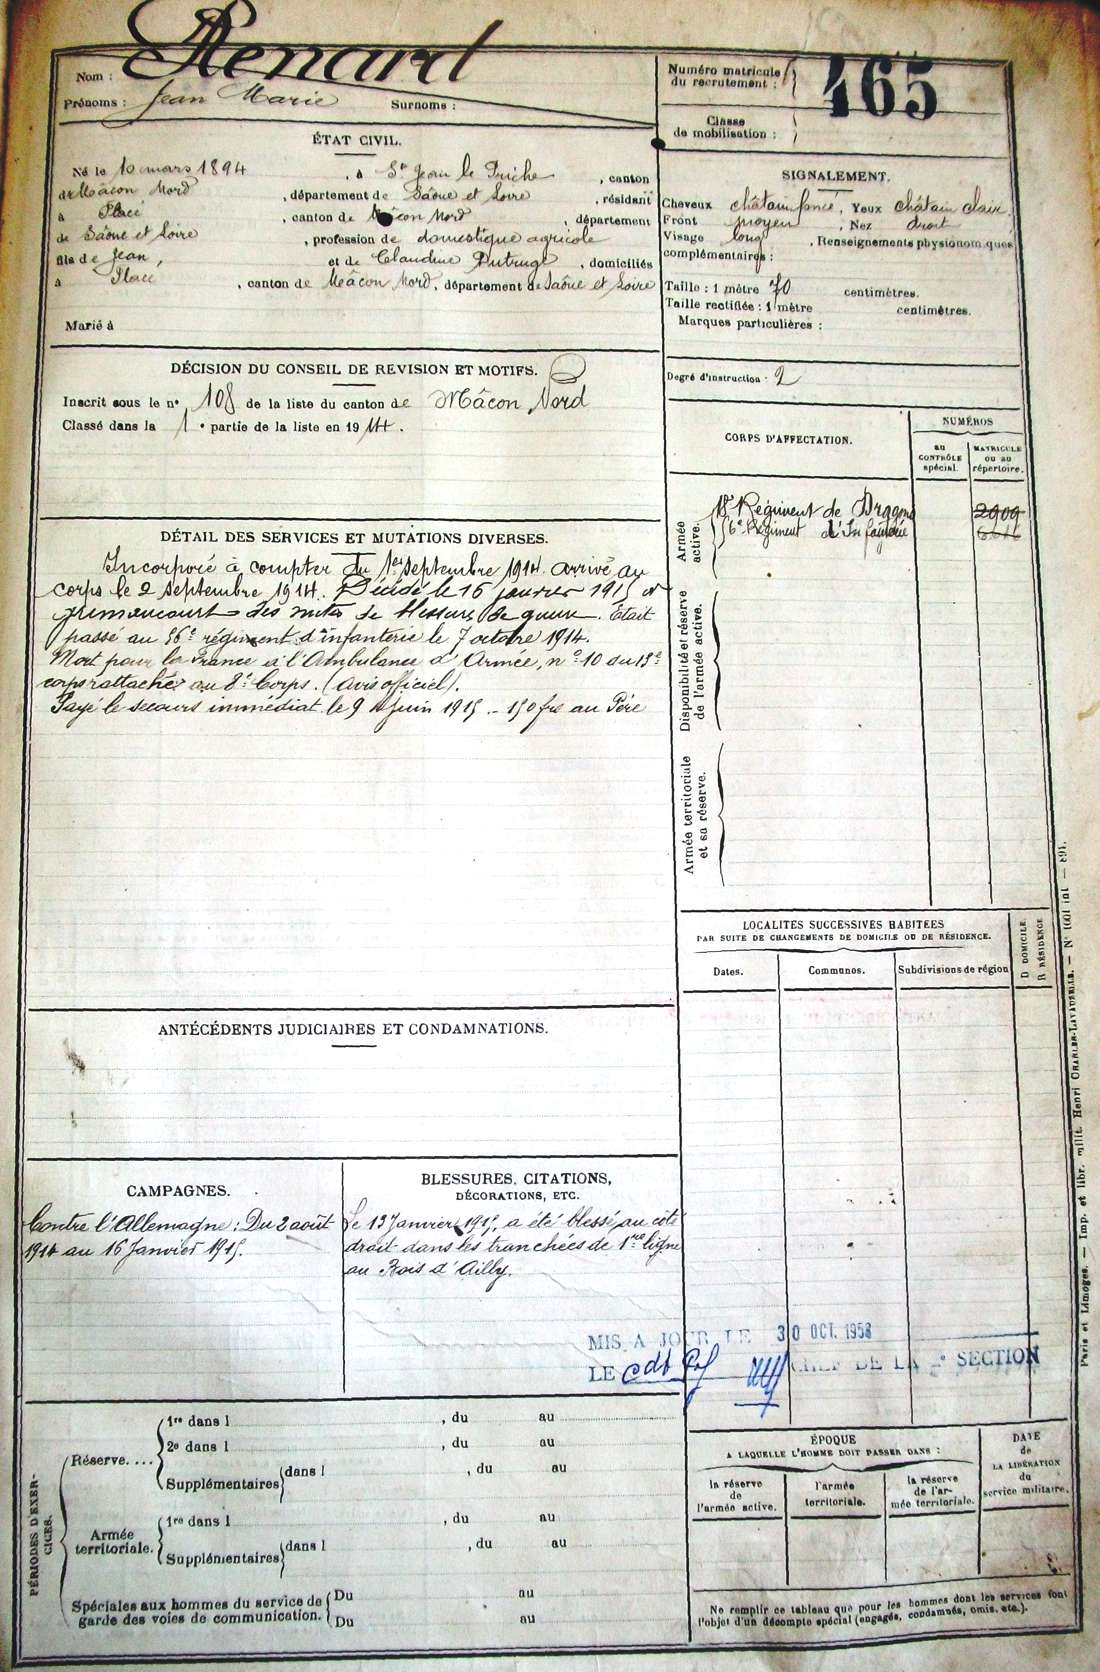 Nom : Renard
Prénoms : Jean Marie Surnoms :
Numéro matricule
du recrutement : 465
Classe
de mobilisation :
ÉTAT CIVIL.
Né le 10 mars 1894, à St Jean le Priche, canton
de Mâcon Nord, département de Saône et Loire, résidant
à Placé, canton de Mâcon Nord, département
de Saône et Loire, profession de domestique agricole
fils de Jean, et de Claudine, domiciliés
à Placé, canton de Mâcon Nord, département de Saône et Loire
Marié à
SIGNALEMENT.
Cheveux châtain foncé, Yeux châtain clair.
Front moyen, Nez droit
Visage long, Renseignements physionomiques
complémentaires :
Taille : 1 mètre 70 centimètres.
Taille rectifiée : 1 mètre centimètres.
Marques particulières :
Degré d'instruction : 2
DÉCISION DU CONSEIL DE REVISION ET MOTIFS.
Inscrit sous le no 108 de la liste du canton de Mâcon Nord
Classé dans la 1e partie de la liste en 1914.
DÉTAIL DES SERVICES ET MUTATIONS DIVERSES.
Incorporé à compter du 1er septembre 1914. arrivé au
corps le 2 septembre 1914. Décédé le 16 janvier 1915 à
des suites de blessures de guerre. Était
passé au 56e régiment d'infanterie le 7 octobre 1914.
Mort pour la France à l'Ambulance d'Armée, no 10 du 13e
corps rattachée au 8e Corps. (Avis officiel).
Payé le secours immédiat le 9 Juin 1915 - 150 frs au Père
CORPS D'AFFECTATION.
NUMÉROS
au
CONTRÔLE
spécial.
MATRICULE
ou au
répertoire.
Armée
active.
18e Régiment de Dragons 2909
56e Régiment d'Infanterie
Disponibilité et réserve
de l'armée active.
Armée territoriale
et sa réserve.
LOCALITÉS SUCCESSIVES HABITÉES
PAR SUITE DE CHANGEMENTS DE DOMICILE OU DE RÉSIDENCE.
Dates.
Communes.
Subdivisions de région
D DOMICILE.
R RÉSIDENCE
ANTÉCÉDENTS JUDICIAIRES ET CONDAMNATIONS.
CAMPAGNES.
Contre l'Allemagne : Du 2 août
1914 au 16 Janvier 1915.
BLESSURES, CITATIONS,
DÉCORATIONS, ETC.
Le 13 Janvier 1915, a été blessé au côté
droit dans les tranchées de 1re ligne
au Bois d'Ailly.
MIS A JOUR LE 30 OCT. 1958
LE CHEF DE LA SECTION
PÉRIODES D'EXER-
CICES.
Réserve....
1re dans l , du au
2e dans l , du au
Supplémentaires dans l , du au
Armée
territoriale.
1re dans l , du au
Supplémentaires dans l , du au
Spéciales aux hommes du service de
garde des voies de communication.
Du au
Du au
ÉPOQUE
A LAQUELLE L'HOMME DOIT PASSER DANS :
la réserve
de
l'armée active.
l'armée
territoriale.
la réserve
de l'ar-
mée territoriale.
DATE
de
LA LIBÉRATION
du
service militaire.
Ne remplir ce tableau que pour les hommes dont les services font
l'objet d'un décompte spécial (engagés, condamnés, omis, etc.).
Paris et Limoges. — Imp. et libr. milit. Henri CHARLES-LAVAUZELLE. —